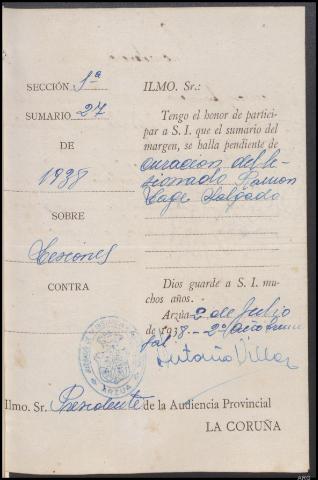 SECCIÓN 1ª
SUMARIO 27
DE
1938
SOBRE
Lesiones
CONTRA
ILMO. Sr.:
Tengo el honor de partici-
par a S. I. que el sumario del
margen, se halla pendiente de
curacion del le-
sionado Ramon
Lage Salgado
Dios guarde a S. I. mu-
chos años.
Arzúa 2 de Julio
de 1938 - 2º año triun
fal.
Antonio Villar
Ilmo. Sr. Presidente de la Audiencia Provincial
LA CORUÑA
ARZUA